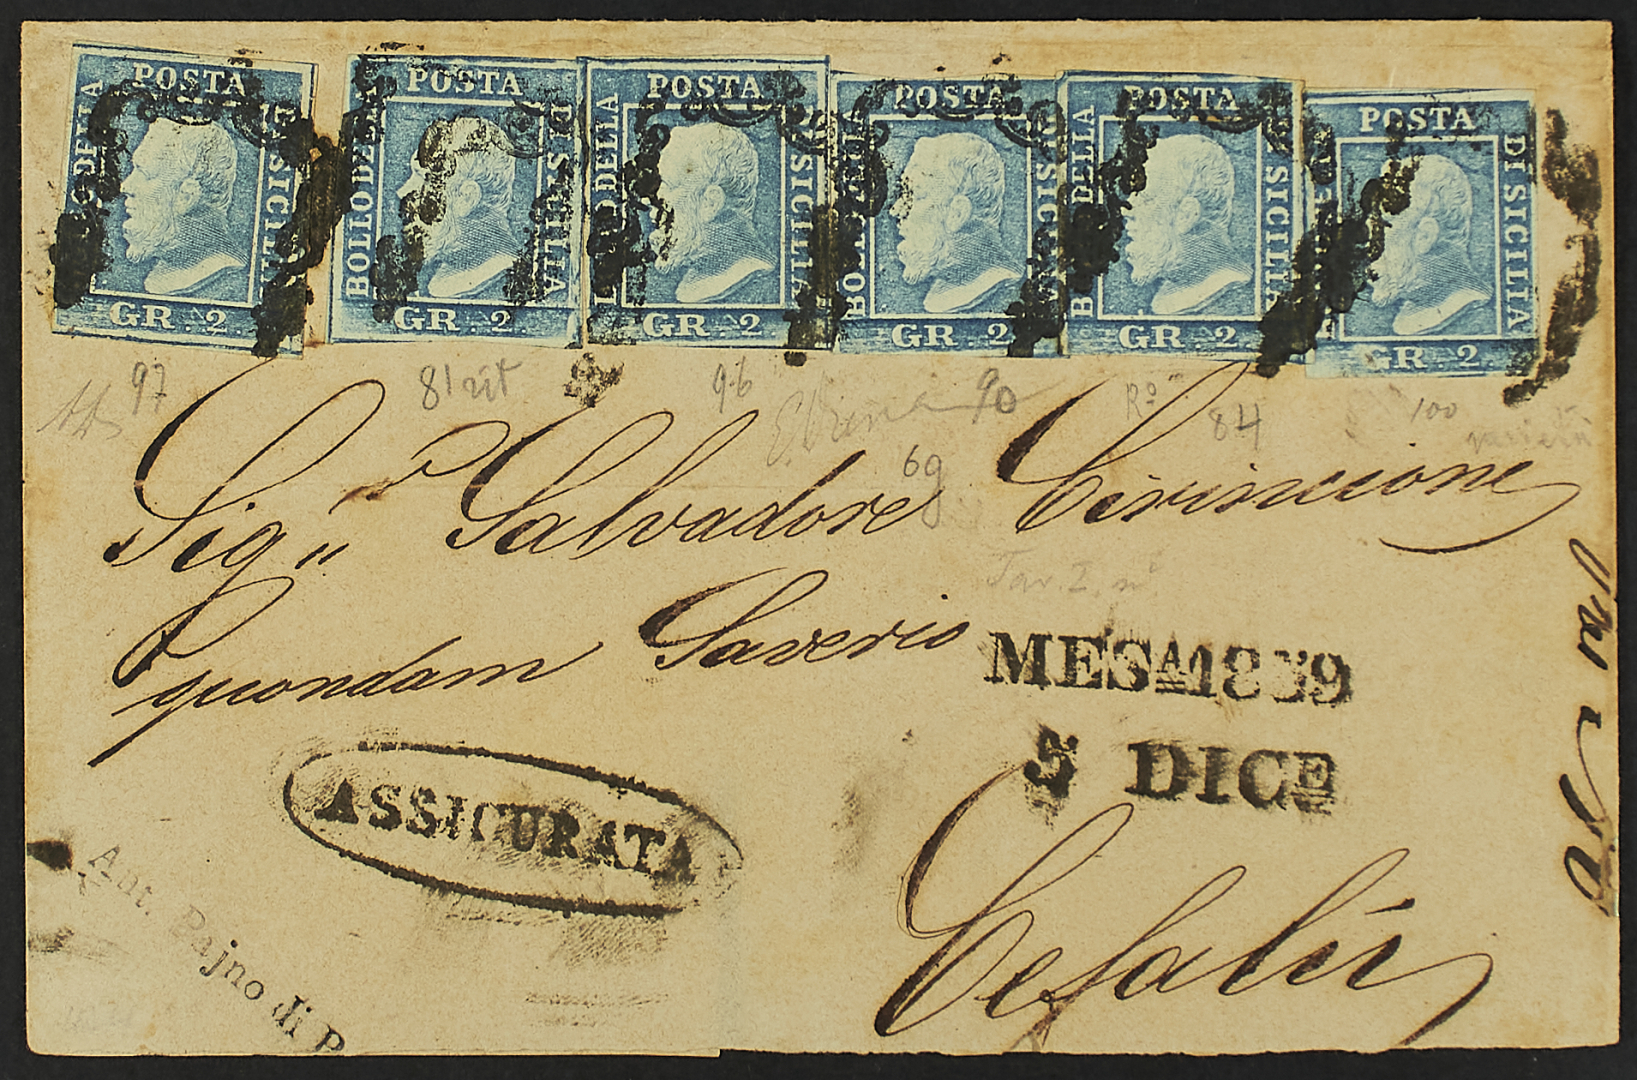 POSTA
BOLLO DELLA
DI SICILIA
GR. 2.
POSTA
BOLLO DELLA
DI SICILIA
GR. 2.
POSTA
BOLLO DELLA
DI SICILIA
GR. 2.
POSTA
BOLLO DELLA
DI SICILIA
GR. 2.
POSTA
BOLLO DELLA
DI SICILIA
GR. 2.
POSTA
DI SICILIA
GR. 2.
97 81 rit 96 90 Ro 84 100
E. Diena
69
Sig.r Salvadore Cirincione
quondam Saverio
Tav. I. n°
MESA 1859
5 DICE
ASSICURATA
Cefalù
Ant. Pajno di P